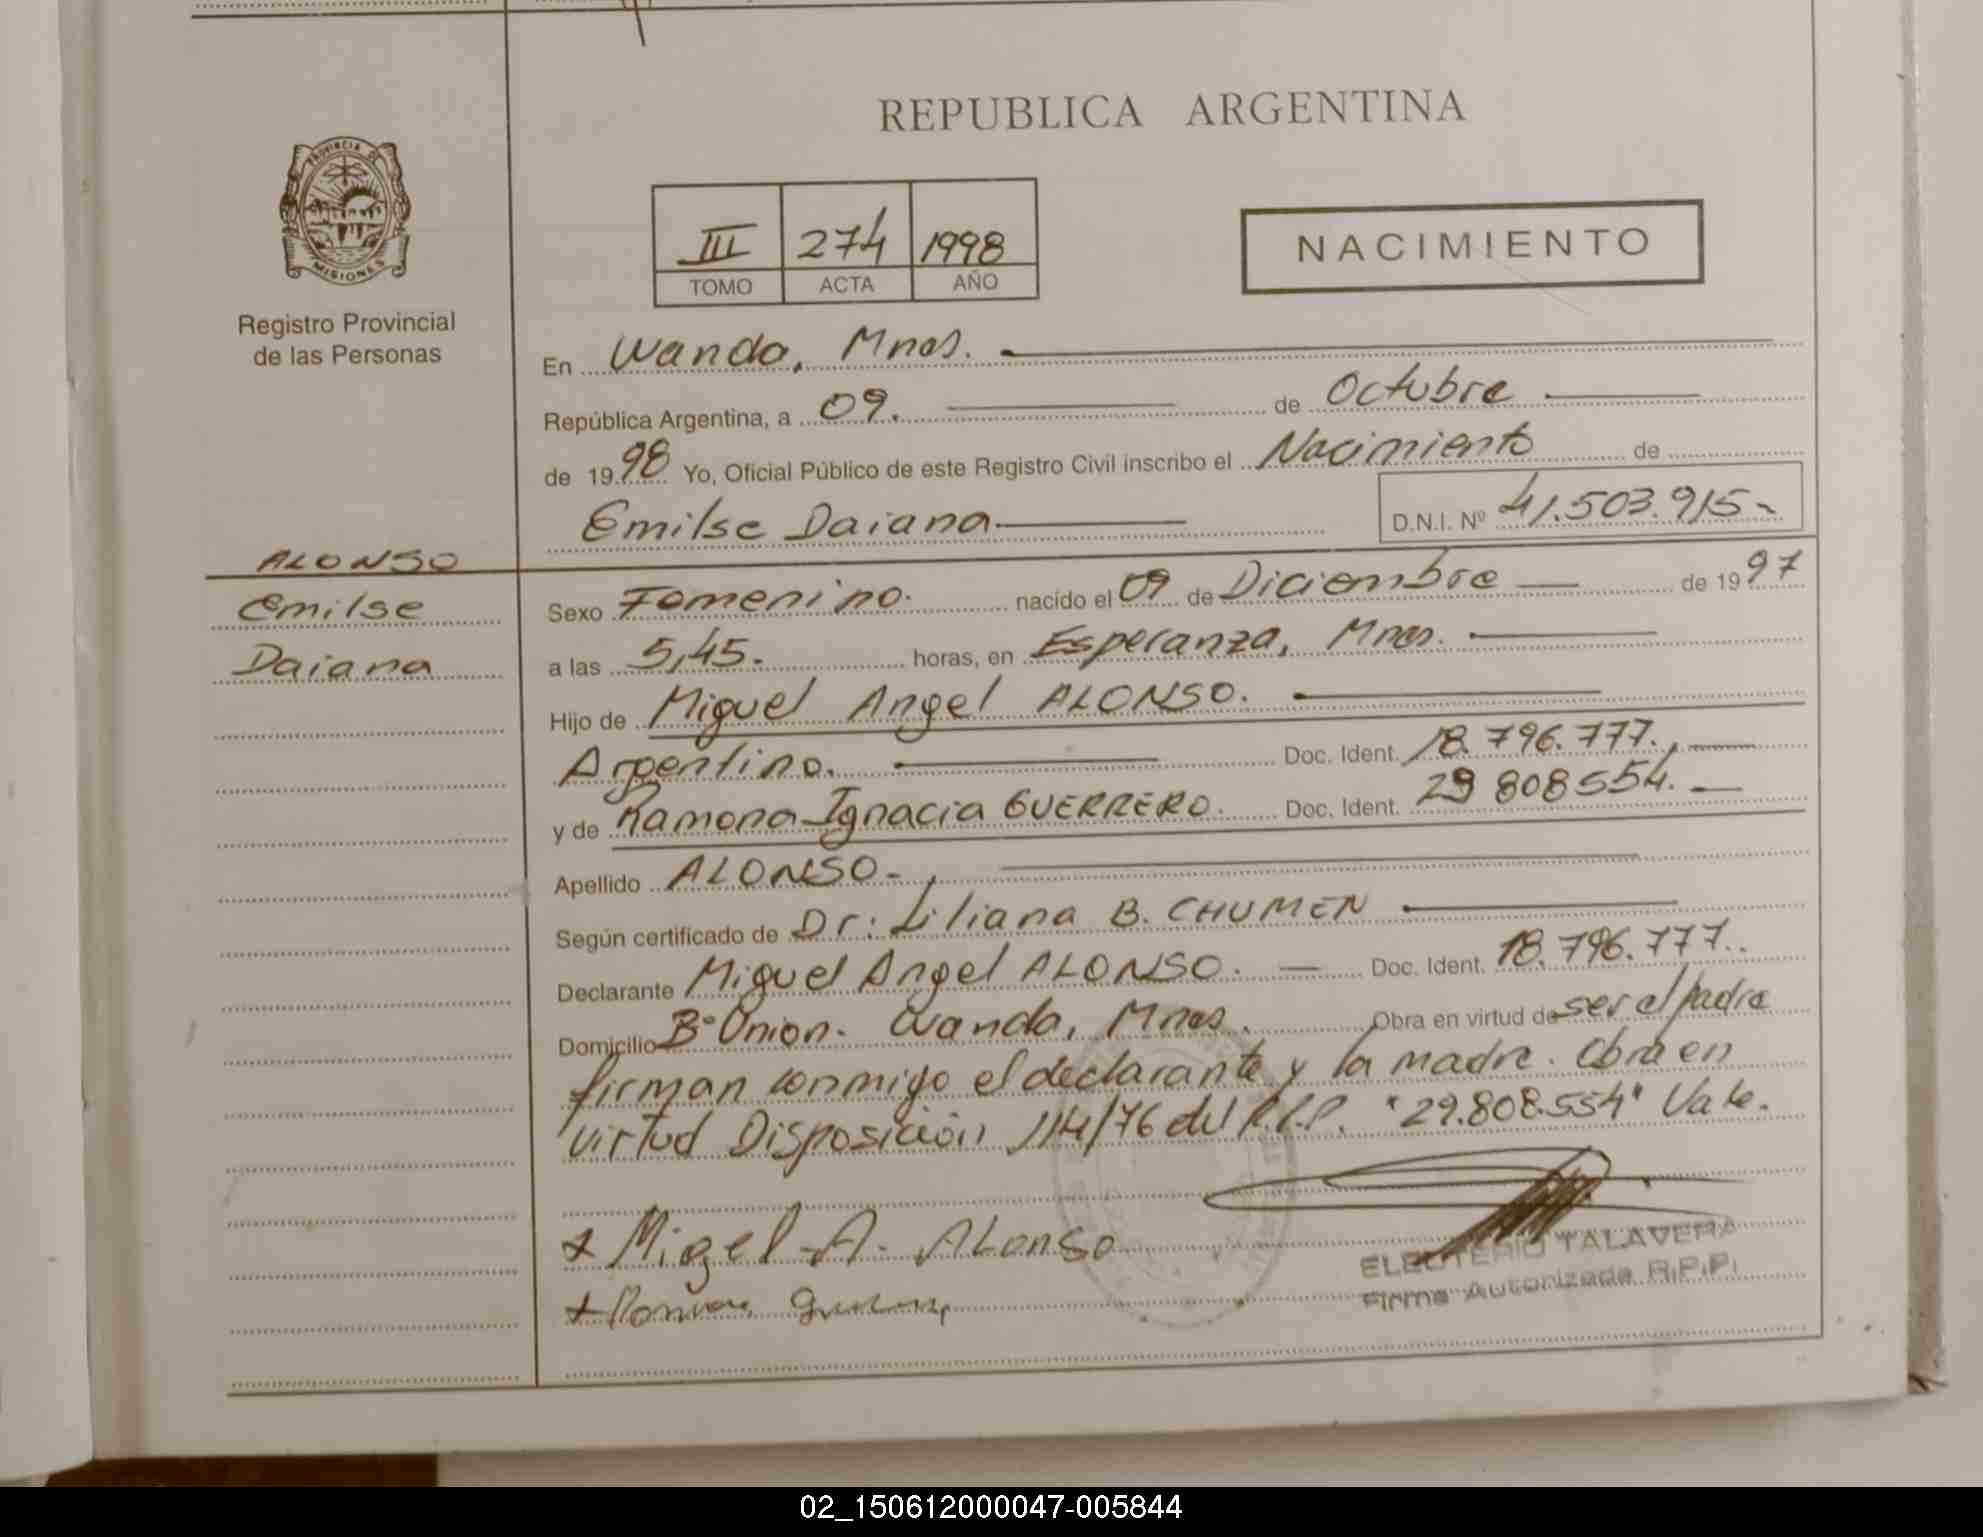 REPUBLICA ARGENTINA
PROVINCIA DE
MISIONES
Registro Provincial
de las Personas
III 274 1998
TOMO ACTA AÑO
NACIMIENTO
En Wanda, Mnes.
República Argentina, a 09. de Octubre
de 1998 Yo, Oficial Público de este Registro Civil inscribo el Nacimiento de
Emilse Daiana D.N.I. Nº 41.503.915-
ALONSO
Emilse
Daiana
Sexo Femenino. nacido el 09 de Diciembre de 1997
a las 5,45. horas, en Esperanza, Mnes.
Hijo de Miguel Angel ALONSO.
Argentino. Doc. Ident. 18.796.777.
y de Ramona Ignacia GUERRERO. Doc. Ident. 29 808554.
Apellido ALONSO-
Según certificado de Dr: Liliana B. CHUMEN
Declarante Miguel Angel ALONSO. Doc. Ident. 18.796.777.
Domicilio Bº Union. Wanda, Mnes. Obra en virtud de ser el padre
firman conmigo el declarante y la madre. Obra en
virtud Disposición 114/76 del R.P.P. "29.808.554" Vale.
x Migel A. Alonso
ELEUTERIO TALAVERA
Firma Autorizada R.P.P.
02_150612000047-005844